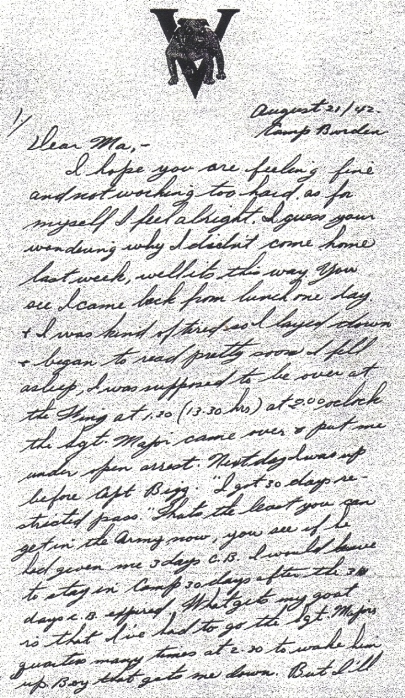 V
August 21/42.
Camp Borden
1/
Dear Ma,-
I hope you are feeling fine
and not working too hard, as for
myself I feel alright. I guess your
wondering why I didn't come home
last week, well its this way. You
see I came back from lunch one day
+ I was kind of tired so I layed down
+ began to read pretty soon I fell
asleep, I was supposed to be over at
the Wing at 1.30 (13.30 hrs) at 2.00 oclock
the Sgt. Major came over & put me
under open arrest. Next day I was up
before Capt Bigg. "I got 30 days re-
stricted pass." Thats the least you can
get in the Army now, you see if he
had given me 3 days C.B. I would have
to stay in Camp 30 days after the 3
days C.B. expired, What gets my goat
is that I've had to go the Sgt. Majors
quarters many times at 2.30 to wake him
up. Boy that gets me down. But I'll